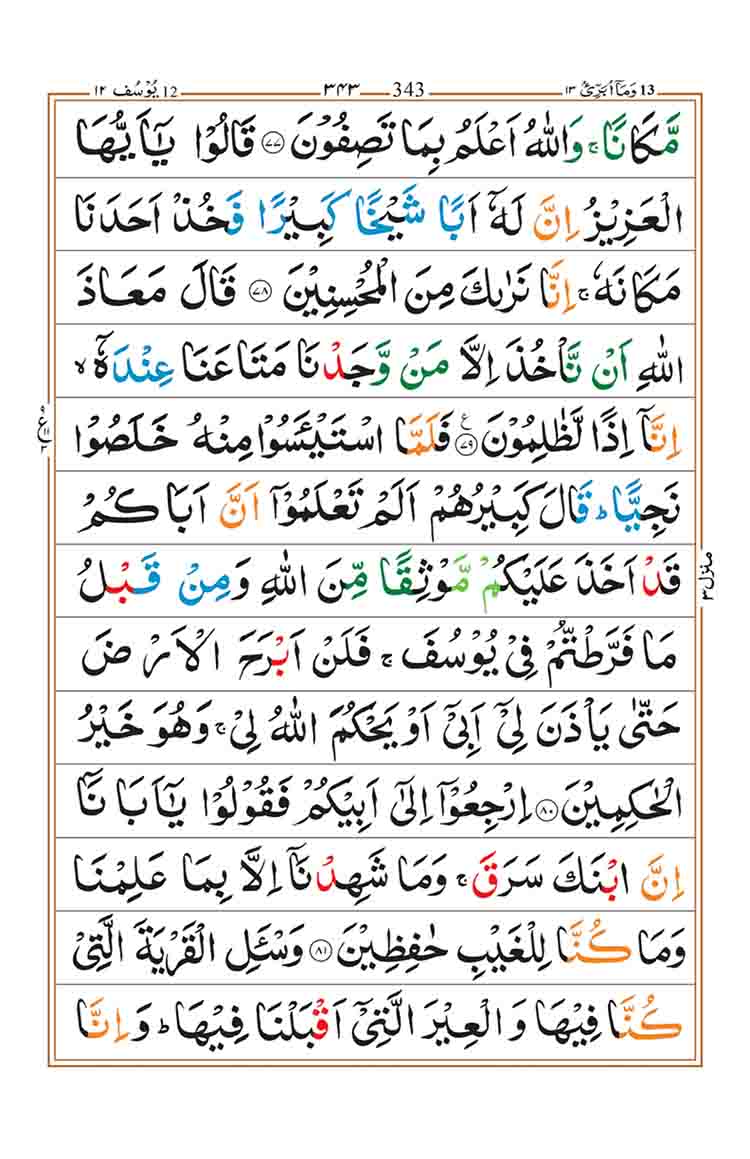 13 وَمَآ اُبَرِّئُ ١٣ 343 ٣٤٣ 12 يُوْسُف ١٢
مَّكَانًا ۚ وَاللّٰهُ اَعْلَمُ بِمَا تَصِفُوْنَ ۝٧٧ قَالُوْا يٰٓاَيُّهَا
الْعَزِيْزُ اِنَّ لَهٗٓ اَبًا شَيْخًا كَبِيْرًا فَخُذْ اَحَدَنَا
مَكَانَهٗ ۚ اِنَّا نَرٰىكَ مِنَ الْمُحْسِنِيْنَ ۝٧٨ قَالَ مَعَاذَ
اللّٰهِ اَنْ نَّاْخُذَ اِلَّا مَنْ وَّجَدْنَا مَتَاعَنَا عِنْدَهٗٓ ۙ
اِنَّآ اِذًا لَّظٰلِمُوْنَ ۝٧٩ ع فَلَمَّا اسْتَيْـَٔسُوْا مِنْهُ خَلَصُوْا
نَجِيًّا ؕ قَالَ كَبِيْرُهُمْ اَلَمْ تَعْلَمُوْٓا اَنَّ اَبَاكُمْ
قَدْ اَخَذَ عَلَيْكُمْ مَّوْثِقًا مِّنَ اللّٰهِ وَمِنْ قَبْلُ
مَا فَرَّطْتُّمْ فِيْ يُوْسُفَ ۚ فَلَنْ اَبْرَحَ الْاَرْضَ
حَتّٰى يَاْذَنَ لِيْٓ اَبِيْٓ اَوْ يَحْكُمَ اللّٰهُ لِيْ ۚ وَهُوَ خَيْرُ
الْحٰكِمِيْنَ ۝٨٠ اِرْجِعُوْٓا اِلٰٓى اَبِيْكُمْ فَقُوْلُوْا يٰٓاَبَانَآ
اِنَّ ابْنَكَ سَرَقَ ۚ وَمَا شَهِدْنَآ اِلَّا بِمَا عَلِمْنَا
وَمَا كُنَّا لِلْغَيْبِ حٰفِظِيْنَ ۝٨١ وَسْـَٔلِ الْقَرْيَةَ الَّتِيْ
كُنَّا فِيْهَا وَالْعِيْرَ الَّتِيْٓ اَقْبَلْنَا فِيْهَا ؕ وَاِنَّا
منزل ٣